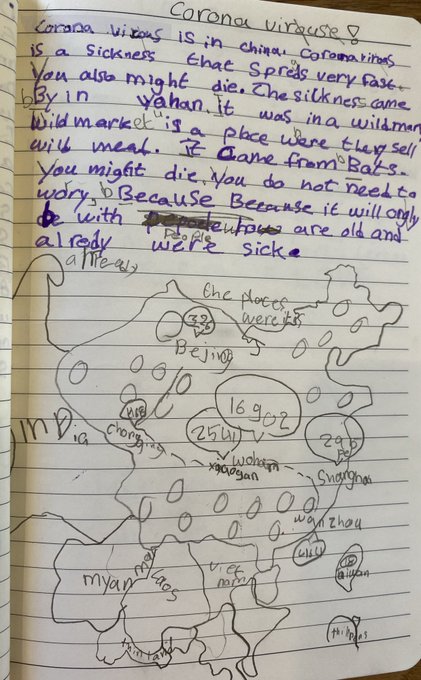 Corona virause!
Corona virous is in china. Coronavirous
is a sickness that Spreds very fast.
You also might die. The silkness came
By in yahan. It was in a wildmarr
wildmarket is a place were they sell
will meat. It Came from Bats.
You might die. You do not need to
wory, Because Because it will ongly
be with People are old and
alredy were sick.
already
the places
were it is
326
Bejing
16902
2541
468
chongqing
INDia
296
wohan
xiaogan
Shanghai
wenzhou
Myan mar
laos
viet nam
thiland
18